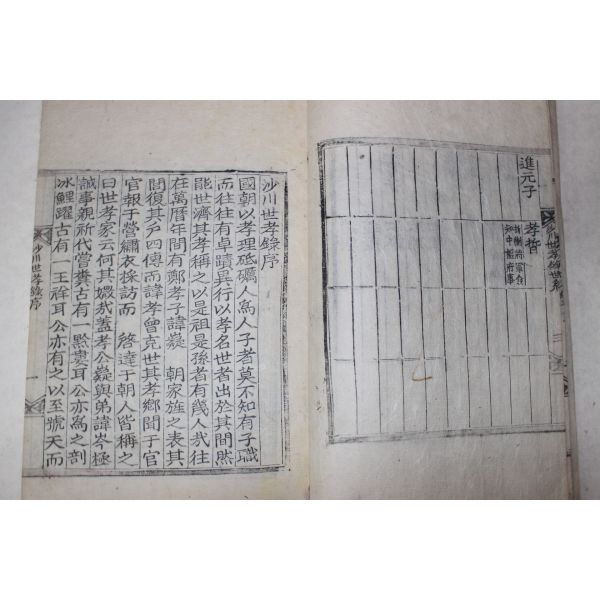 進元子
孝哲
知中樞府事
沙川世孝錄世系
沙川世孝錄序
國朝以孝理砥礪人爲人子者莫不知有子職
而往往有卓蹟異行以孝名世者出於其間然
能世濟其孝稱之以是祖是孫者有幾人哉往
在萬曆年間有鄭孝子諱嶷 朝家旌之表其
閭復其戶四傳而諱孝曾克世其孝鄕聞于官
官報于營繡衣採訪而 啓達于朝人皆稱之
曰世孝家云何其媺哉盖孝公嶷與弟諱岑極
誠事親祈代嘗糞古有一黔婁耳公亦爲之剖
冰鯉躍古有一王祥耳公亦有之以至號天而
沙川世孝錄序
一